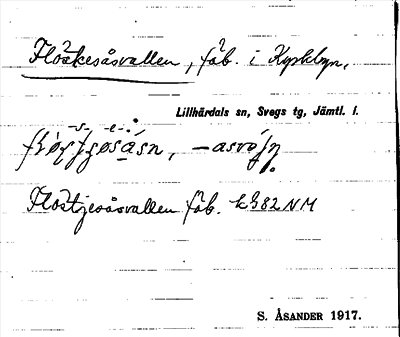 Flöskesåsvallen, fäb. i Kyrkbyn,
Lillhärdals sn, Svegs tg, Jämtl. l.
Flöstjesåsvallen fäb. k982NM
S. ÅSANDER 1917.